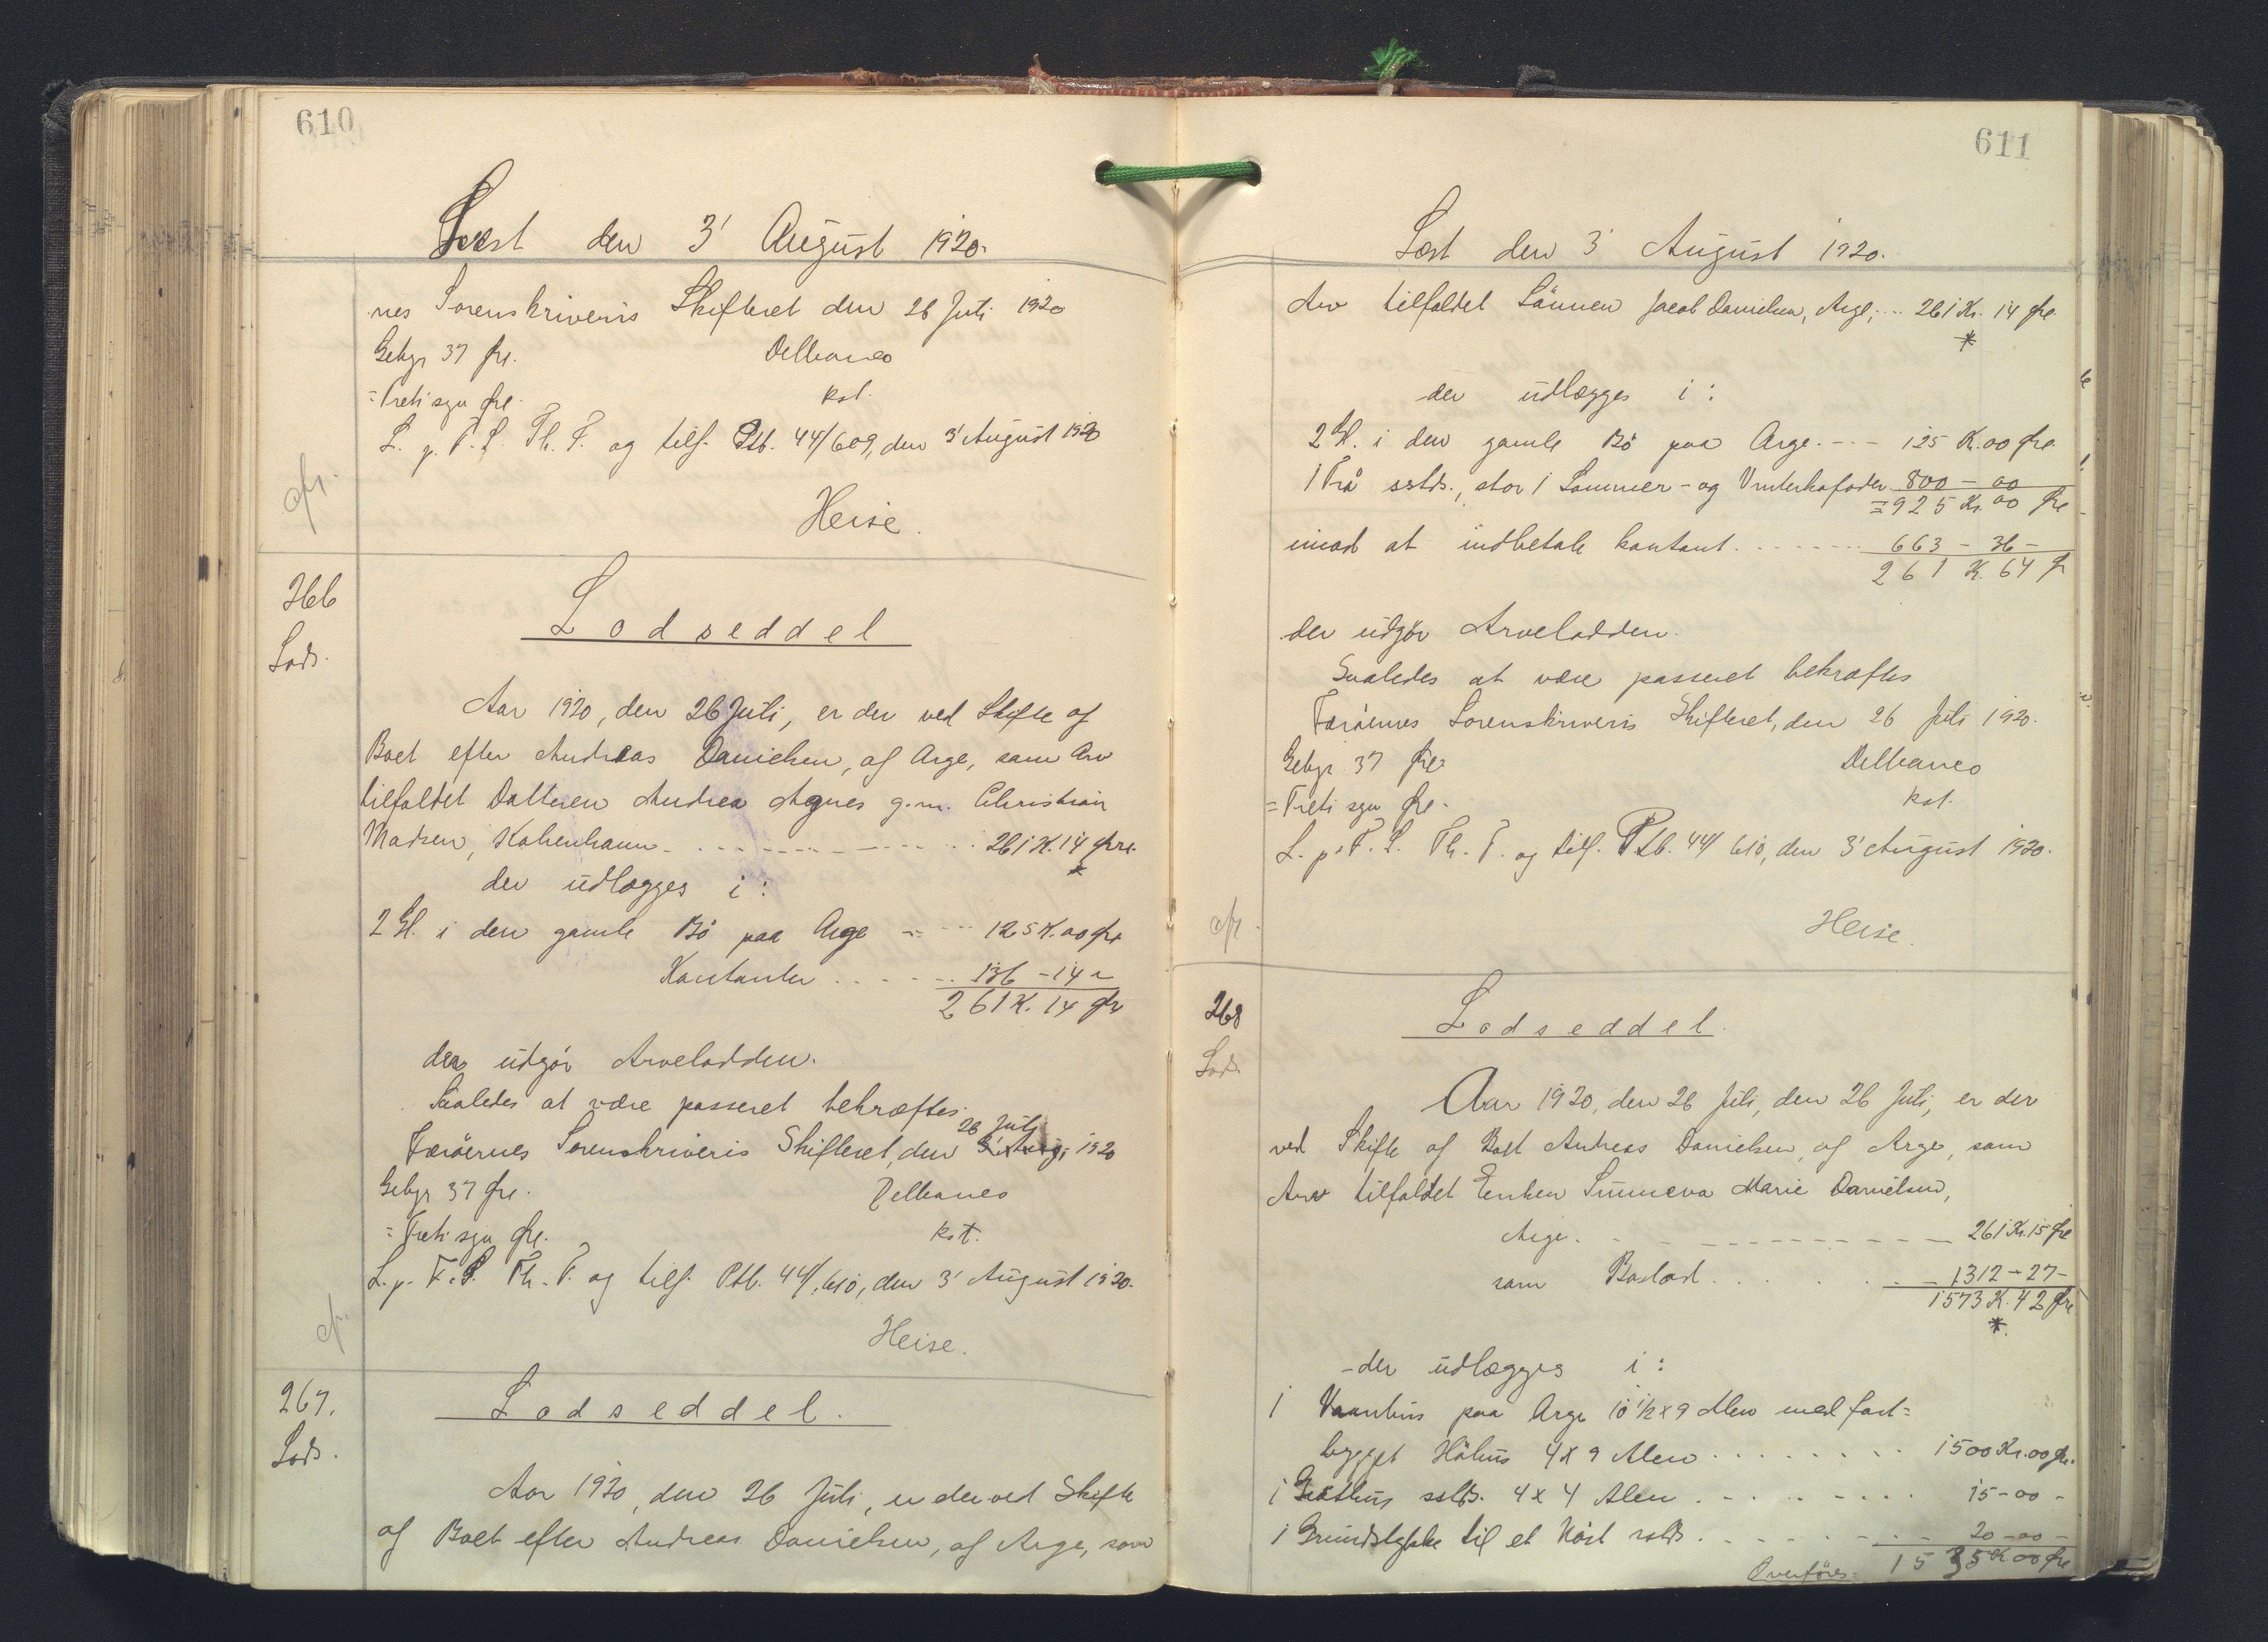 610
Læst den 3' August 1920.
nes Sorenskriveris Skifteret den 26 Juli 1920
Gebyr 37 Øre. Delbanco
= Treti syv Øre. kst.
L. p. F. L. Th. F. og tilf. Ptb. 44/609, den 3' August 1920
cfr.
Heise.
266
Lods.
Lodseddel
Aar 1920, den 26 Juli, er der ved Skifte af
Boet efter Andreas Danielsen, af Arge, som Arv
tilfaldet Datteren Andrea Agnes g.m. Christian
Madsen, København. - - - 261 K. 14 Øre.
*
der udlægges i:
2 Gl. i den gamle Bø paa Arge - - - 125 K. 00 Øre
Kontanter . . . . 136 - 14 -
261 K. 14 Øre
der udgør Arvelodden.
Saaledes at være passeret bekræftes.
26 Juli
Færøernes Sorenskriveris Skifteret, den 3' Aug. 1920
Gebyr 37 Øre. Delbanco
= Treti syv Øre. kst.
L. p. F. L. Th. F. og tilf. Ptb. 44/610, den 3' August 1920.
cfr.
Heise.
267.
Lods.
Lodseddel.
Aar 1920, den 26 Juli, er der ved Skifte
af Boet efter Andreas Danielsen, af Arge, som
611
Læst den 3' August 1920.
Arv tilfaldet Sønnen Jacob Danielsen, Arge, ... 261 Kr. 14 Øre
*
der udlægges i:
2 Gl. i den gamle Bø paa Arge. - - - 125 K. 00 Øre
1 Trø sstds., stor 1 Sommer- og Vinterkofoder 800 - 00
= 925 Kr. 00 Øre
imod at indbetale kontant. . . . . . . . 663 - 36 -
261 K. 64 Ø
der udgør Arvelodden.
Saaledes at være passeret bekræftes
Færøernes Sorenskriveris Skifteret, den 26 Juli 1920.
Gebyr 37 Øre Delbanco
= Treti syv Øre. kst.
L. p. F. L. Th. F. og tilf. Ptb. 44/610, den 3' August 1920.
cfr.
Heise.
268
Lods.
Lodseddel.
Aar 1920, den 26 Juli, den 26 Juli, er der
ved Skifte af Boet Andreas Danielsen, af Arge, som
Arv tilfaldet Enken Sunneva Marie Danielsen,
Arge. - - - - - - - - - - 261 Kr. 15 Øre
som Boslod . . . . . . - 1312 - 27 -
1573 K. 42 Øre
*
- der udlægges i:
1 Vaanhus paa Arge 10 1/2 x 9 Alen med fast=
bygget Høhus 4 x 9 Alen . . . . . . . . 1500 Kr. 00 Ør.
1 Grathus sstds. 4 x 4 Alen . - . . - . . . . 15 - 00 -
1 Grundstykke til et Nøst sstds. . - . . - . - - 20 - 00 -
Overføres = 1535 K 00 Øre